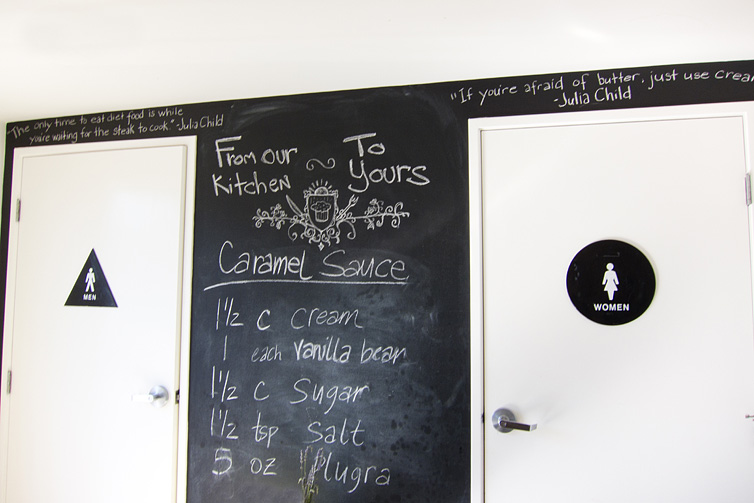 "The only time to eat diet food is while
you're waiting for the steak to cook." -Julia Child
"If you're afraid of butter, just use cream
-Julia Child
From our Kitchen ~ To Yours
Caramel Sauce
1 1/2 c cream
1 each vanilla bean
1 1/2 c Sugar
1 1/2 tsp Salt
5 oz Plugra
MEN
WOMEN